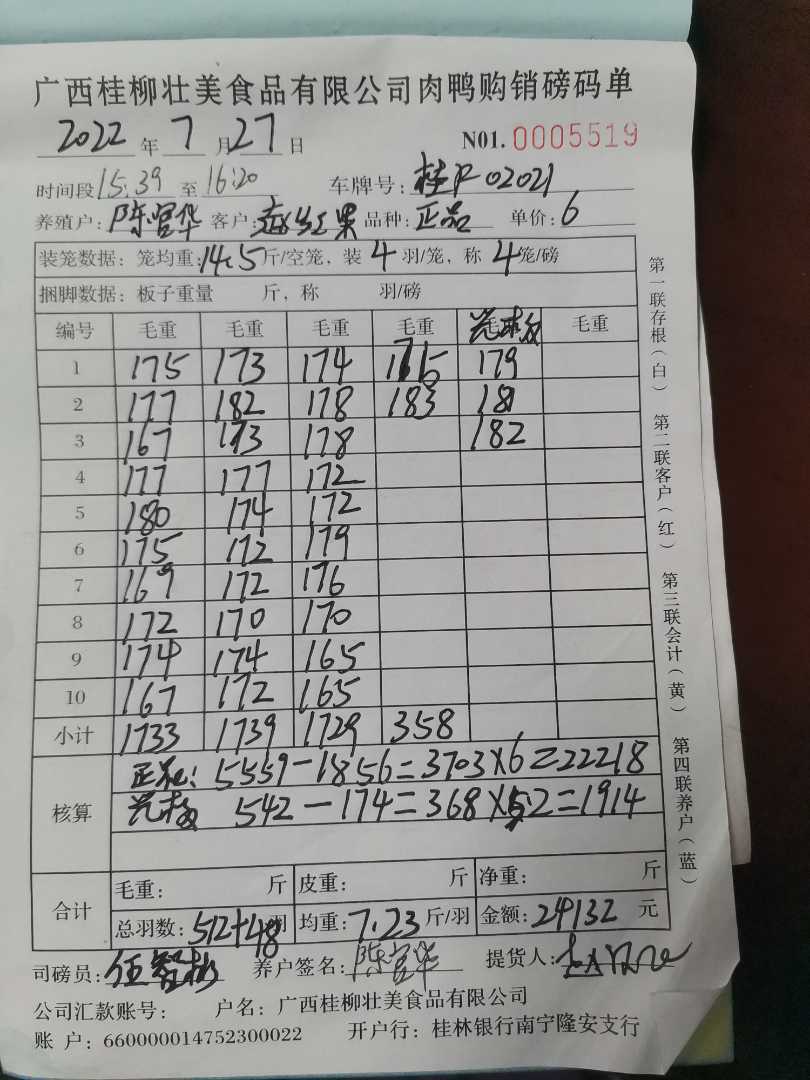 广西桂柳壮美食品有限公司肉鸭购销磅码单
2022 年 7 月 27 日 N01. 0005519
时间段 15:39 至 16:20 车牌号: 桂R 02021
养殖户: 陈官华 客户: 品种: 正品 单价: 6
装笼数据: 笼均重: 14.5 斤/空笼, 装 4 羽/笼, 称 4 笼/磅
捆脚数据: 板子重量 斤, 称 羽/磅
编号 毛重 毛重 毛重 毛重 毛重
1 175 173 174 175 179
2 177 182 178 183 181
3 167 173 178 182
4 177 177 172
5 180 174 172
6 175 172 179
7 169 172 176
8 172 170 170
9 174 174 165
10 167 172 165
小计 1733 1739 1729 358
核算
正品: 5559-1856=3703×6=22218
542-174=368×5.2=1914
合计
毛重: 斤 皮重: 斤 净重: 斤
总羽数: 512+48 羽 均重: 7.23 斤/羽 金额: 24132 元
司磅员: 养户签名: 陈官华 提货人:
公司汇款账号: 户名: 广西桂柳壮美食品有限公司
账 户: 660000014752300022 开户行: 桂林银行南宁隆安支行
第一联存根(白) 第二联客户(红) 第三联会计(黄) 第四联养户(蓝)